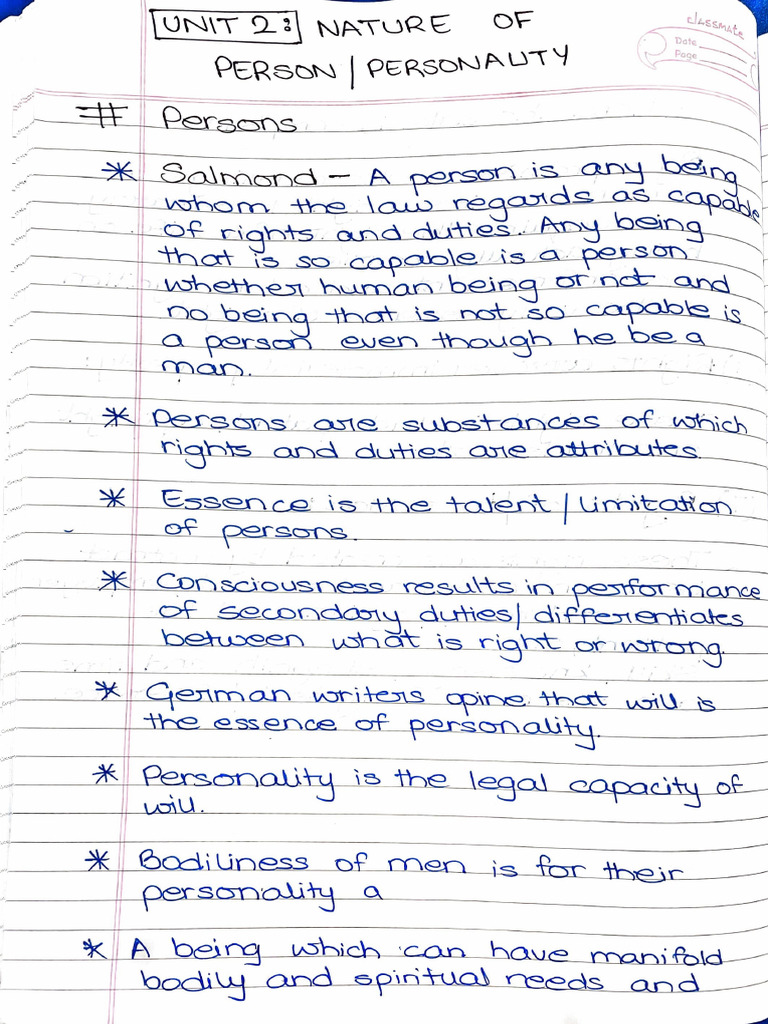 UNIT 2: NATURE OF
PERSON / PERSONALITY
classmate
Date
Page
# Persons
* Salmond - A person is any being
whom the law regards as capable
of rights and duties. Any being
that is so capable is a person
whether human being or not and
no being that is not so capable is
a person even though he be a
man.
* Persons are substances of which
rights and duties are attributes.
* Essence is the talent / limitation
of persons.
* Consciousness results in performance
of secondary duties/ differentiates
between what is right or wrong.
* German writers opine that will is
the essence of personality.
* Personality is the legal capacity of
will.
* Bodiliness of men is for their
personality a
* A being which can have manifold
bodily and spiritual needs and